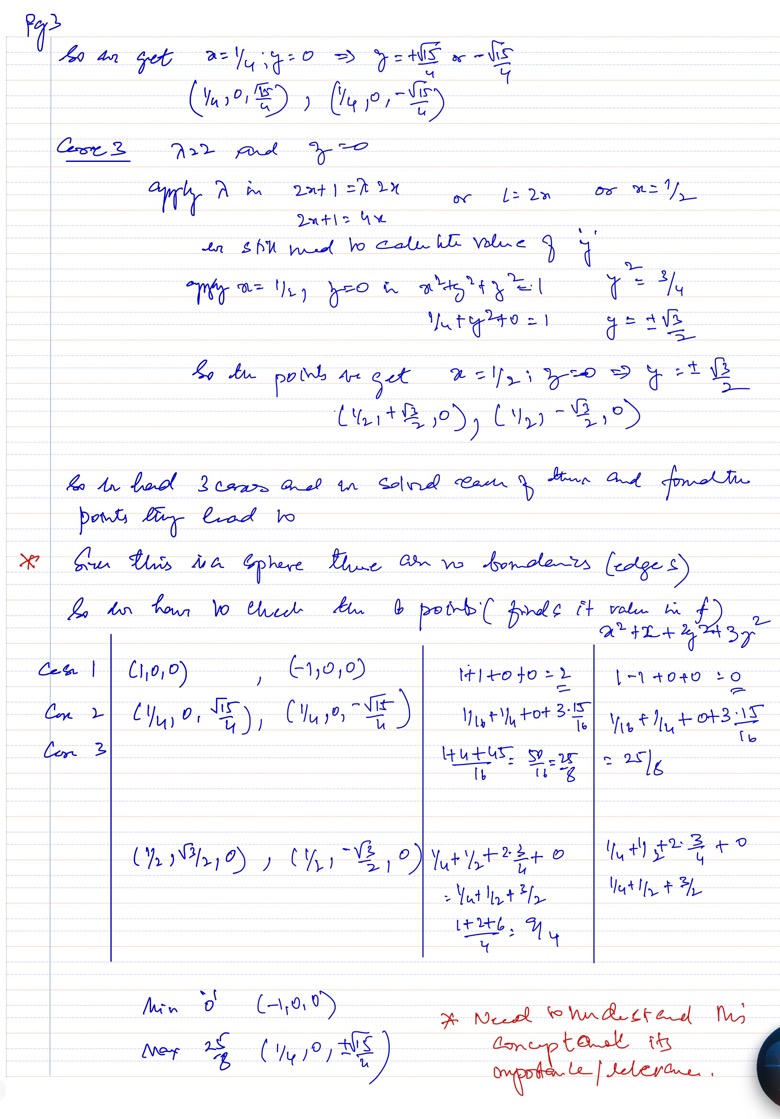 Pg 3
So we get x = 1/4 ; y = 0 ⇒ z = +√15/4 or -√15/4
(1/4, 0, √15/4) , (1/4, 0, -√15/4)
Case 3 λ=2 and z=0
apply λ in 2x+1 = λ2x or 1 = 2x or x = 1/2
2x+1 = 4x
we still need to calculate value of 'y'
apply x = 1/2, z=0 in x²+y²+z² = 1 y² = 3/4
1/4 + y²+0 = 1 y = ±√3/2
So the points we get x = 1/2 ; z=0 ⇒ y = ±√3/2
(1/2, +√3/2, 0), (1/2, -√3/2, 0)
So we had 3 cases and we solved each of them and found the
points they lead to
* Since this is a sphere there are no boundaries (edges)
So we have to check the 6 points (finds it value in f)
x²+x+2y²+3z²
Case 1 (1,0,0) , (-1,0,0) 1+1+0+0 = 2 1-1+0+0 = 0
Case 2 (1/4, 0, √15/4), (1/4, 0, -√15/4) 1/16+1/4+0+3·15/16 1/16+1/4+0+3·15/16
Case 3 1+4+45/16 = 50/16 = 25/8 = 25/8
(1/2, √3/2, 0) , (1/2, -√3/2, 0) 1/4+1/2+2·3/4+0 1/4+1/2+2·3/4+0
= 1/4+1/2+3/2 1/4+1/2+3/2
1+2+6/4 = 9/4
Min '0' (-1,0,0)
Max 25/8 (1/4, 0, ±√15/4)
* Need to understand this
concept and its
importance/relevance.